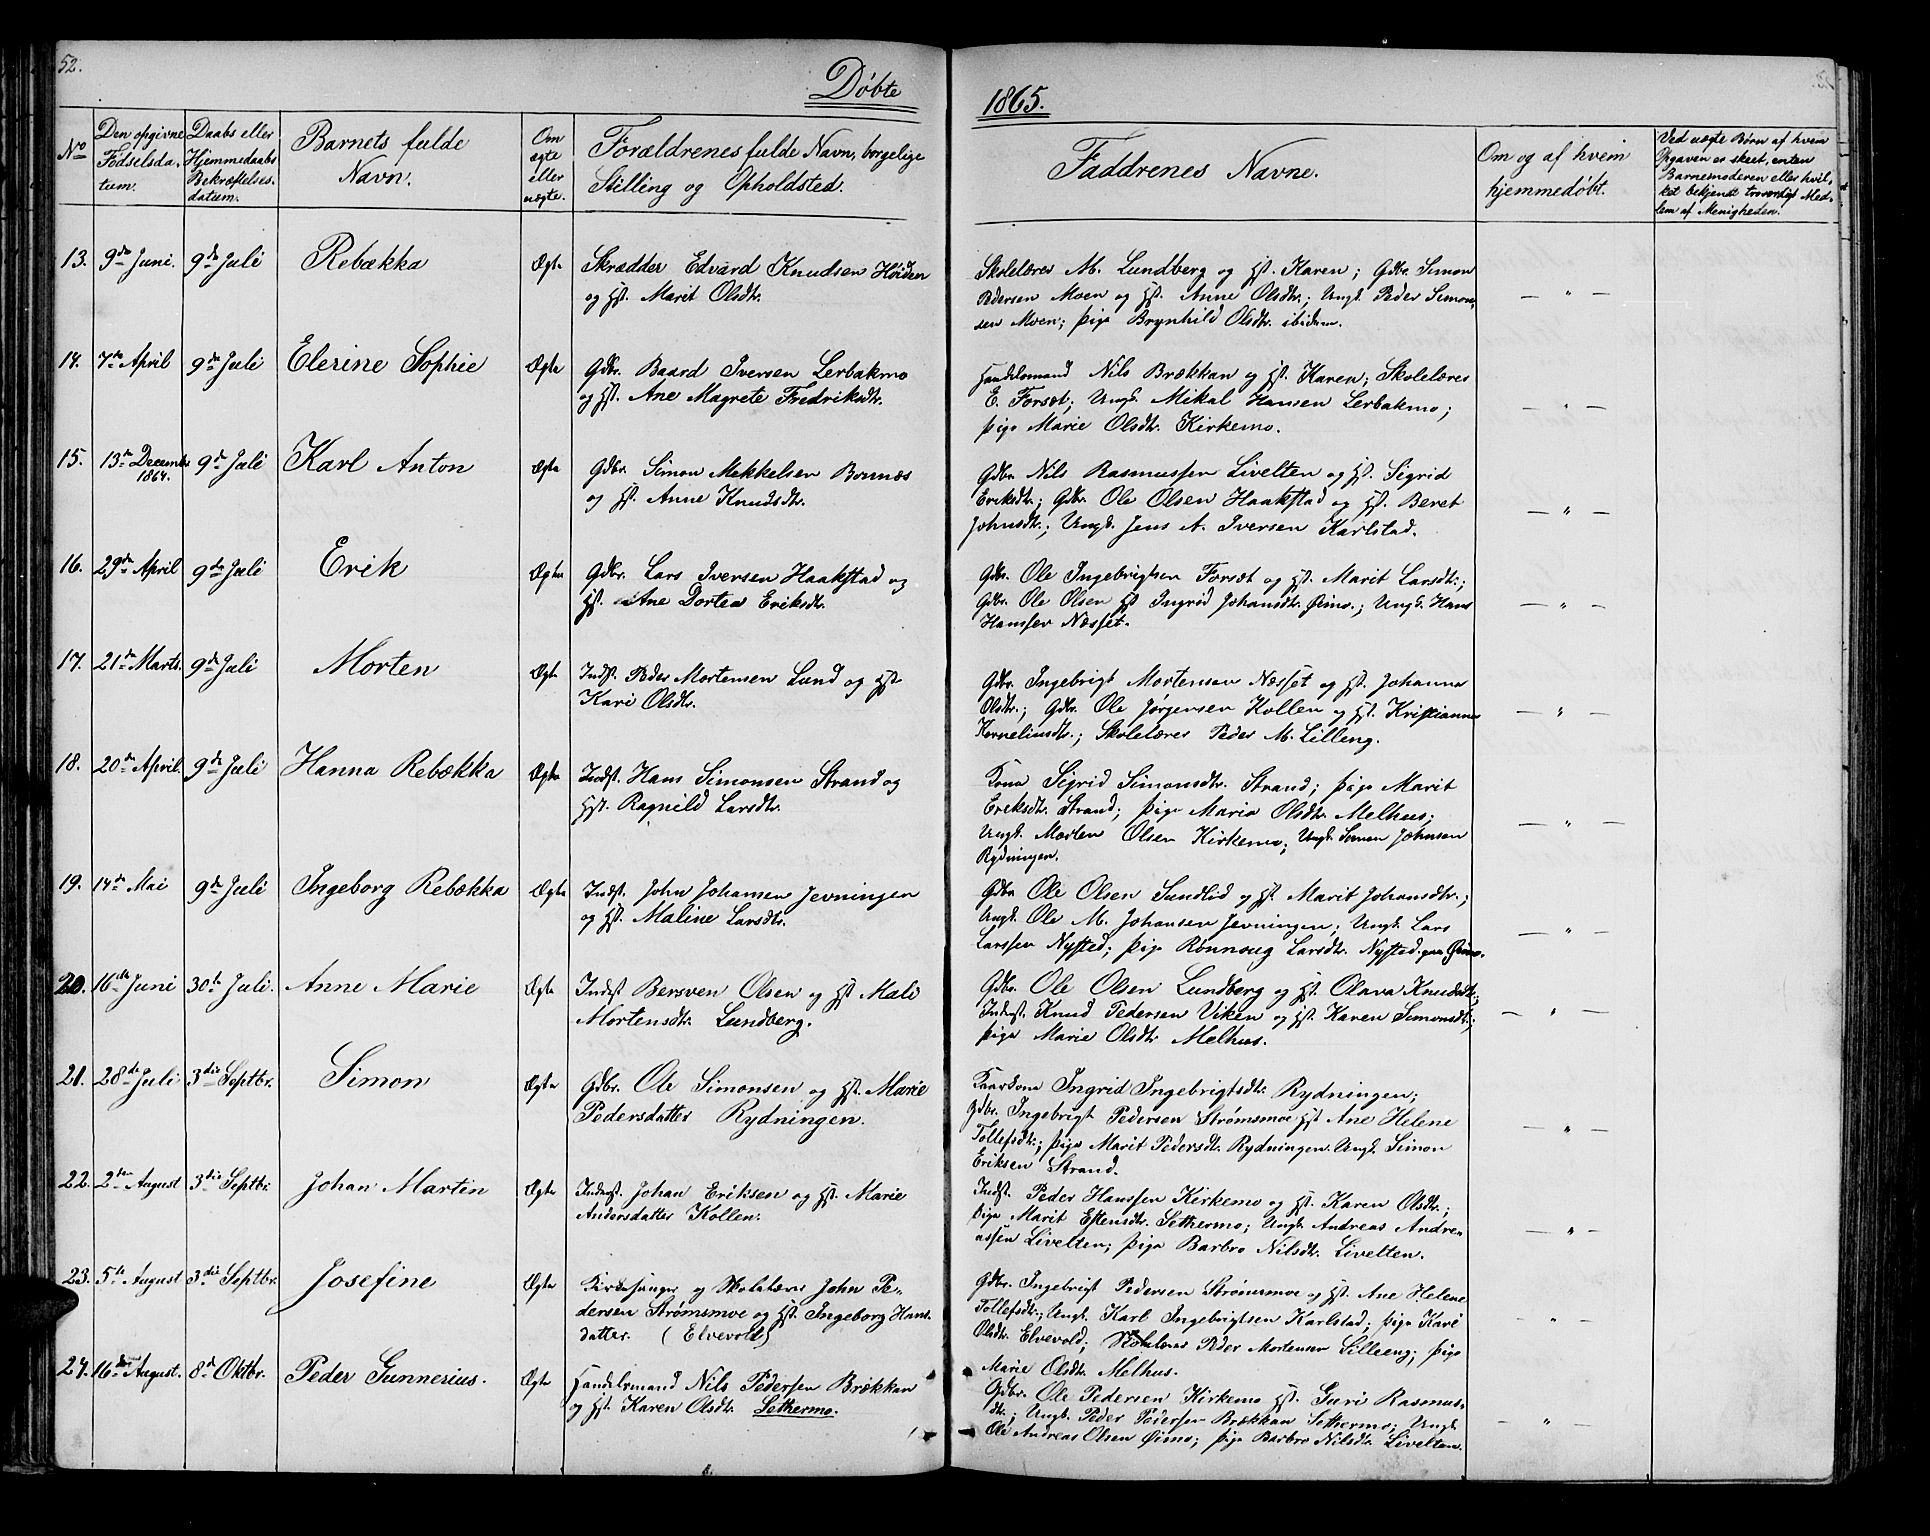 52.
Døbte
1865.
No
Den opgivne Fødselsda-tum.
Daabs eller Hjemmedaabs Bekræftelses-datum.
Barnets fulde Navn.
Om ægte eller uægte.
Forældrenes fulde Navn, borgelige Stilling og Opholdsted.
Faddrenes Navne.
Om og af hvem hjemmedøbt.
Ved uægte Børn af hvem Opgaven er skeet, enten Barnemoderen eller hvil-ket bekjendt troværdigt Med-lem af Menigheden.
13. 9de Juni. 9de Juli Rebækka Ægte Skrædder Edvard Knudsen Høiden
og Hst. Marit Olsdtr.
Skolelærer M. Lundberg og Hst. Karen; Gdbr. Simon
Pedersen Moen og Hst. Anne Olsdtr.; Ungk. Peder Simon-
sen Moen; Pige Brynhild Olsdtr. ibidem. — " —
14. 7de April 9de Juli Elerine Sophie Ægte Gdbr. Baard Iversen Lerbakmo
og Hst. Ane Magrete Fredriksdtr.
Handelsmand Nils Brækkan og Hst. Karen; Skolelærer
E. Forsæt; Ungk. Mikal Hansen Lerbakmo;
Pige Marie Olsdtr. Kirkemo. — " —
15. 13de December 1864. 9de Juli Karl Anton Ægte Gdbr. Simon Mikkelsen Bonnæs
og Hst. Anne Knudsdtr.
Gdbr. Nils Rasmussen Livelten og Hst. Sigrid
Eriksdtr.; Gdbr. Ole Olsen Haakstad og Hst. Beret
Johnsdtr.; Ungk. Jens A. Iversen Karlstad. — " —
16. 29de April 9de Juli Erik Ægte Gdbr. Lars Iversen Haakstad og
Hst. Ane Dortea Eriksdtr.
Gdbr. Ole Ingebrigtsen Forsæt og Hst. Marit Larsdtr.;
Gdbr. Ole Olsen Hst Ingrid Johansdtr. Øimo.; Ungk. Hans
Hanssen Næsset. — " —
17. 21de Marts. 9de Juli Morten Ægte Indst. Peder Mortensen Lund og Hst
Kari Olsdtr.
Gdbr. Ingebrigt Mortensen Næsset og Hst. Johanna
Olsdtr.; Gdbr. Ole Jørgensen Kollen og Hst. Kristianne
Korneliusdtr.; Skolelærer Peder M. Lilleng. — " —
18. 20de April. 9de Juli Hanna Rebækka Ægte Indst. Hans Simonsen Strand og
Hst. Ragnild Larsdtr.
Kona Sigrid Simonsdtr. Strand; Pige Marit
Eriksdtr. Strand; Pige Maria Olsdtr. Melhus;
Ungk. Morten Olsen Kirkemo; Ungk. Simon Johnsen
Rydningen. — " —
19. 14de Mai 9de Juli Ingeborg Rebækka Ægte Indst. John Johansen Jevningen
og Hst. Maline Larsdtr.
Gdbr Ole Olsen Sundlid og Hst. Marit Johansdtr.;
Ungk. Ole M. Johansen Jevningen; Ungk. Lars
Larssen Nysted; Pige Rønnoug Larsdtr. Nysted paa Øimo. — " —
20. 16de Juni 30te Juli. Anne Marie Ægte Inderst Bersven Olsen og Hst Mali
Mortensdtr. Lundberg.
Gdbr. Ole Olsen Lundberg og Hst. Olava Knudsdtr.;
Inderst. Knud Pedersen Viken og Hst. Karen Simonsdtr.;
Pige Marie Olsdtr Melhus. — " —
21. 28de Juli 3die Septbr. Simon Ægte Gdbr. Ole Simonsen og Hst. Marie
Pedersdatter Rydningen.
Kaarkona Ingrid Ingebrigtsdtr. Rydningen;
Gdbr. Ingebrigt Pedersen Strømsmoe Hst Ane Helene
Tollefsdtr.; Pige Marit Pedersdtr. Rydningen. Ungk. Simon
Eriksen Strand. — " —
22. 2den August 3die Septbr. Johan Martin Ægte Inderst. Johan Eriksen og Hst. Marie
Andersdatter Kollen.
Indst. Peder Hanssen Kirkemo og Hst. Karen Olsdtr.;
Pige Marit Estensdtr. Sethermo; Ungk. Andreas Andre-
assen Livelten; Pige Barbro Nilsdtr. Livelten. — " —
23. 5te August 3die Septbr. Josefine Ægte Kirkesanger og Skolelærer John Pe-
dersen Strømsmoe og Hst. Ingeborg Hans
datter. (Elvevold)
Gdbr. Ingebrigt Pedersen Strømsmoe og Hst. Ane Helene
Tollefsdtr.; Ungk. Karl Ingebrigtsen Karlstad; Pige Kari
Olsdtr. Elvevold; Skolelærer Peder Mortensen Lilleeng; Pige
Marie Olsdtr. Melhus. — " —
24. 16de August. 8de Oktbr. Peder Gunnerius. Ægte Handelsmand Nils Pedersen Brækkan
og Hst. Karen Olsdtr. Sethermo.
Gdbr. Ole Pedersen Kirkemo Hst. Guri Rasmus-
dtr.; Ungk. Peder Pedersen Brækkan Sethermo; Ungk.
Ole Andreas Olsen Øimo; Pige Barbro Nilsdtr. Livelten. — " —